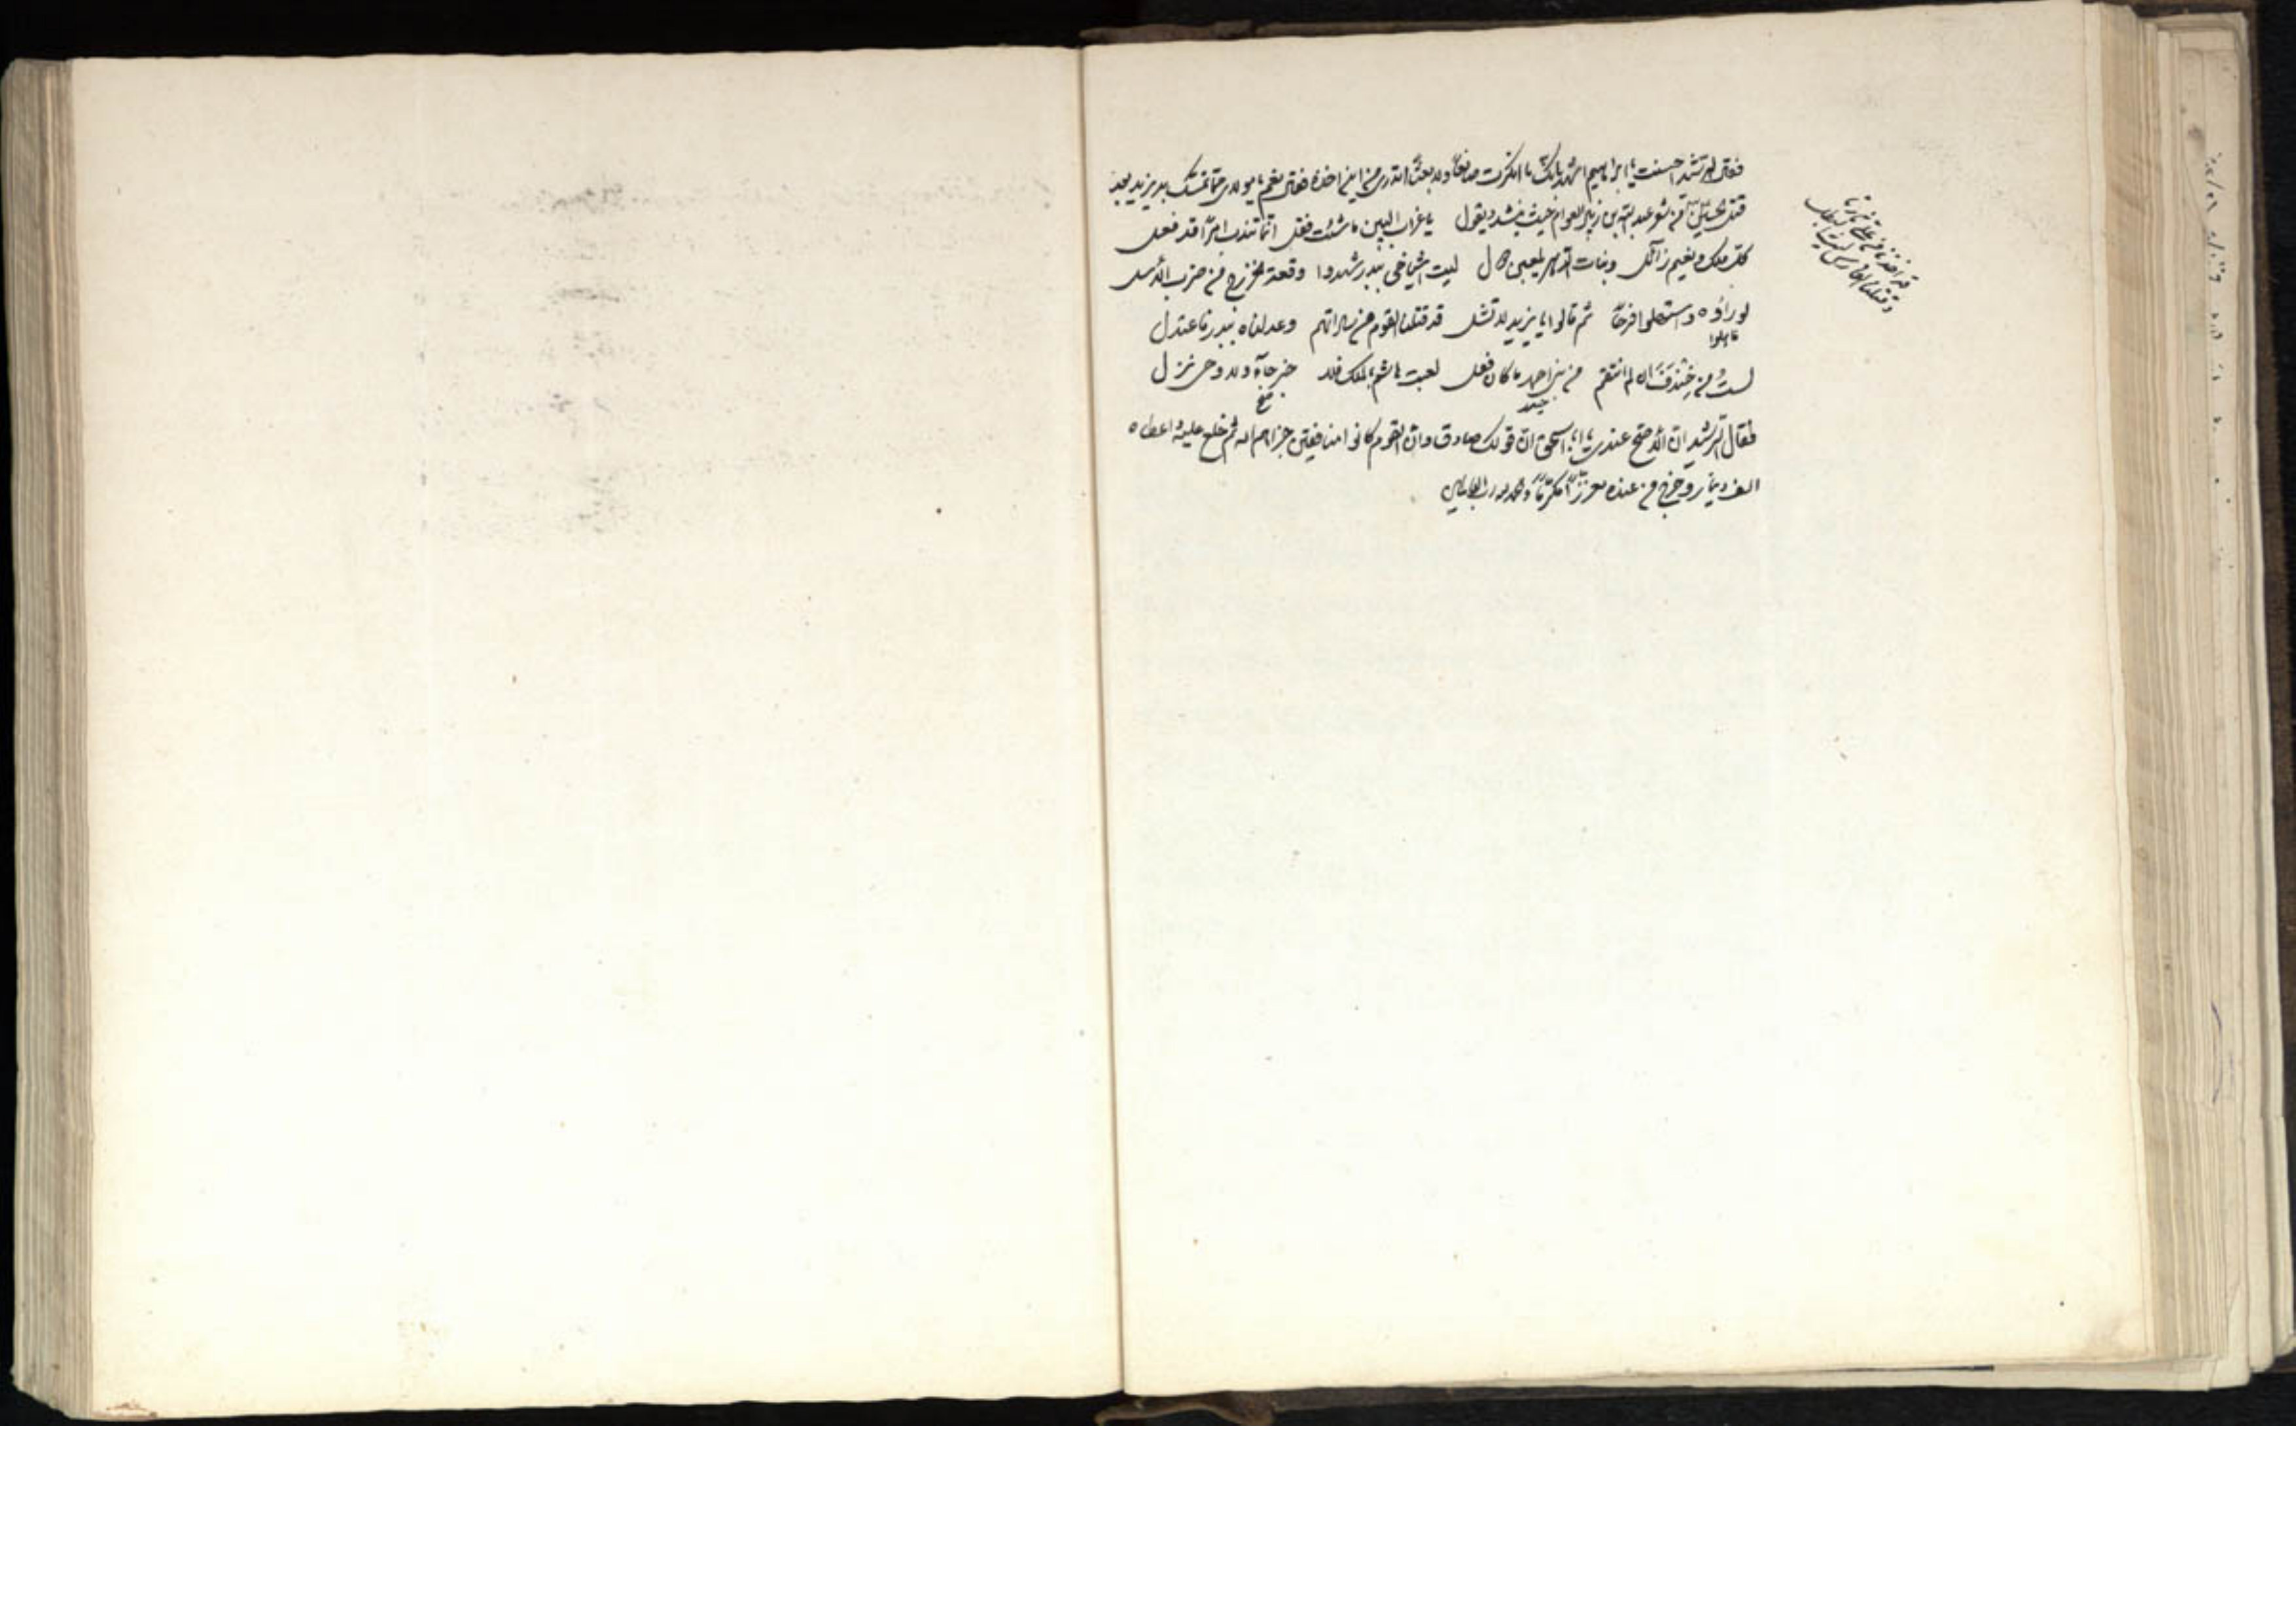 فقال الرشيد احسنت يا ابراهيم اشهد بانك ما انكرت صانعا ولا بعثا اتدري من اين اخذه فقال نعم يا مولاي مما تمسك به يزيد بعد
قتل الحسين من شعر عبد الله بن زبير العوام حيث ينشد ويقول يا غراب البين ما شئت فقل انما تندب امرا قد فعل
كل ملك ونعيم زائل وبنات الدهر يلعبن بكل ليت اشياخي ببدر شهدوا وقعة الخزرج من ضرب الاسل
لو راوه واستهلوا فرحا ثم قالوا يا يزيد لا تشل قد قتلنا القوم من ساداتهم وعدلناه ببدر فاعتدل
فاهلوا
لست من خندف ان لم انتقم من بني احمد ما كان فعل لعبت هاشم بالملك فلا خبر جاء ولا وحي نزل
فقال الرشيد ان الله صح عندي يا ابا اسحق ان قولك صادق وان القوم كانوا منافقين جزاهم الله ثم خلع عليه واعطاه
الف دينار وخرج من عنده معززا مكرما والحمد لله رب العالمين
قد اخذنا من علي ثارنا
وقتلنا الفارس الليث البطل